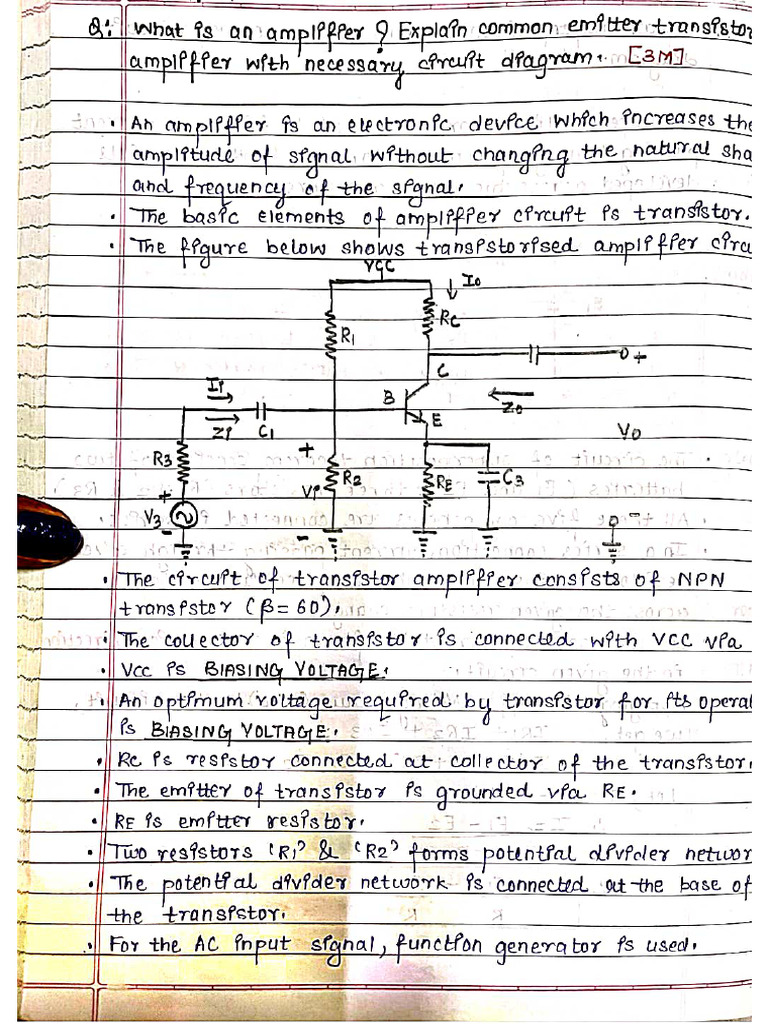 Q: What is an amplifier ? Explain common emitter transistor
amplifier with necessary circuit diagram. [3M]
• An amplifier is an electronic device which increases the
amplitude of signal without changing the natural sha
and frequency of the signal.
• The basic elements of amplifier circuit is transistor.
• The figure below shows transistorised amplifier circu
VCC
Io
R1
RC
+
C
Ii
B
Zo
Zi
C1
E
Vo
R3
+
R2
Vi
RE
C3
+
V3
-
-
-
• The circuit of transistor amplifier consists of NPN
transistor (β=60).
• The collector of transistor is connected with VCC via
• VCC is BIASING VOLTAGE.
• An optimum voltage required by transistor for its operat
is BIASING VOLTAGE.
• RC is resistor connected at collector of the transistor.
• The emitter of transistor is grounded via RE.
• RE is emitter resistor.
• Two resistors 'R1' & 'R2' forms potential divider networ
• The potential divider network is connected at the base of
the transistor.
• For the AC input signal, function generator is used.